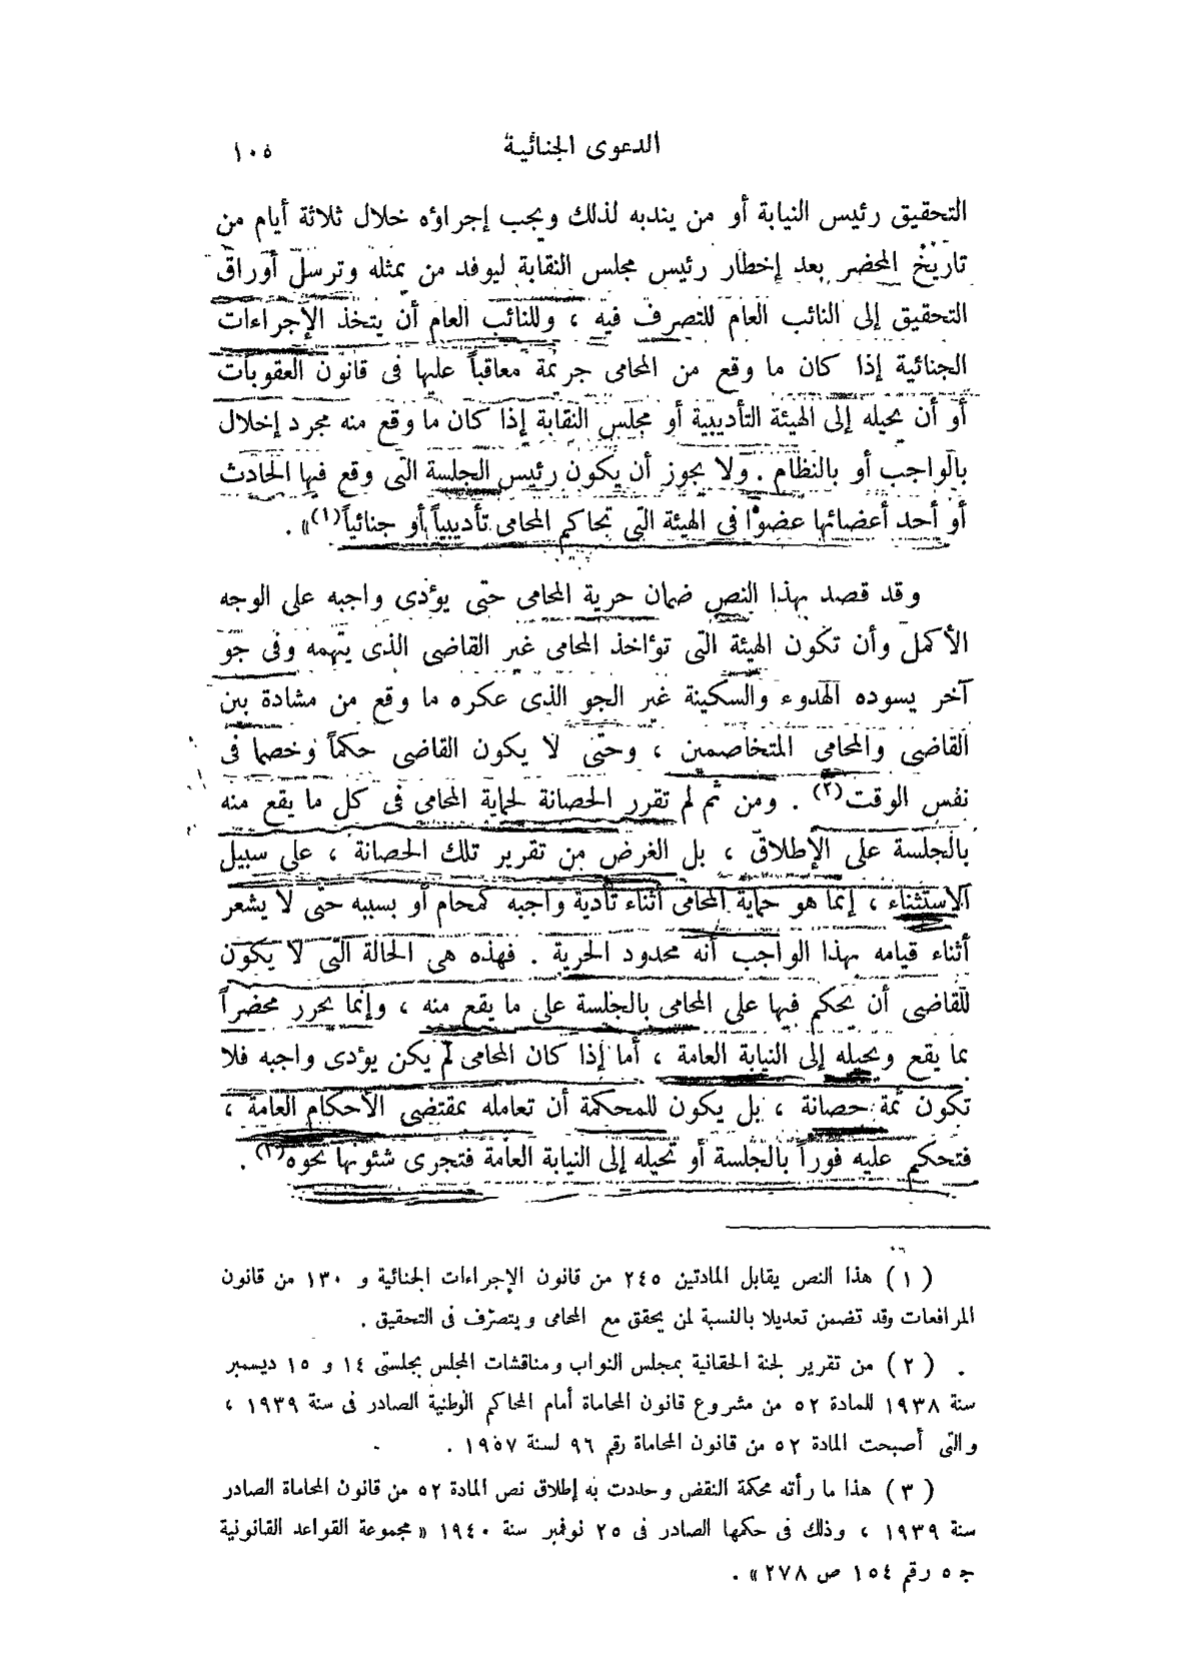 الدعوى الجنائية ١٠٥
التحقيق رئيس النيابة أو من يندبه لذلك ويجب إجراؤه خلال ثلاثة أيام من
تاريخ المحضر بعد إخطار رئيس مجلس النقابة ليوفد من يمثله وترسل أوراق
التحقيق إلى النائب العام للتصرف فيه ، وللنائب العام أن يتخذ الإجراءات
الجنائية إذا كان ما وقع من المحامى جريمة معاقباً عليها فى قانون العقوبات
أو أن يحيله إلى الهيئة التأديبية أو مجلس النقابة إذا كان ما وقع منه مجرد إخلال
بالواجب أو بالنظام . ولا يجوز أن يكون رئيس الجلسة التى وقع فيها الحادث
أو أحد أعضائها عضواً فى الهيئة التى تحاكم المحامى تأديبياً أو جنائياً(١)» .
وقد قصد بهذا النص ضمان حرية المحامى حتى يؤدى واجبه على الوجه
الأكمل وأن تكون الهيئة التى تؤاخذ المحامى غير القاضى الذى يتهمه وفى جو
آخر يسوده الهدوء والسكينة غير الجو الذى عكره ما وقع من مشادة بين
القاضى والمحامى المتخاصمين ، وحتى لا يكون القاضى حكماً وخصما فى
نفس الوقت(٢) . ومن ثم لم تقرر الحصانة لحماية المحامى فى كل ما يقع منه
بالجلسة على الإطلاق ، بل الغرض من تقرير تلك الحصانة ، على سبيل
الاستثناء ، إنما هو حماية المحامى أثناء تأدية واجبه كمحام أو بسببه حتى لا يشعر
أثناء قيامه بهذا الواجب أنه محدود الحرية . فهذه هى الحالة التى لا يكون
للقاضى أن يحكم فيها على المحامى بالجلسة على ما يقع منه ، وإنما يحرر محضراً
بما يقع ويحيله إلى النيابة العامة ، أما إذا كان المحامى لم يكن يؤدى واجبه فلا
تكون ثمة حصانة ، بل يكون للمحكمة أن تعامله بمقتضى الأحكام العامة ،
فتحكم عليه فوراً بالجلسة أو تحيله إلى النيابة العامة فتجرى شئونها نحوه(٣) .
(١) هذا النص يقابل المادتين ٢٤٥ من قانون الإجراءات الجنائية و ١٣٠ من قانون
المرافعات وقد تضمن تعديلا بالنسبة لمن يحقق مع المحامى ويتصرف فى التحقيق .
(٢) من تقرير لجنة الحقانية بمجلس النواب ومناقشات المجلس بجلستى ١٤ و ١٥ ديسمبر
سنة ١٩٣٨ للمادة ٥٢ من مشروع قانون المحاماة أمام المحاكم الوطنية الصادر فى سنة ١٩٣٩ ،
والتى أصبحت المادة ٥٢ من قانون المحاماة رقم ٩٦ لسنة ١٩٥٧ .
(٣) هذا ما رأته محكمة النقض وحددت به إطلاق نص المادة ٥٢ من قانون المحاماة الصادر
سنة ١٩٣٩ ، وذلك فى حكمها الصادر فى ٢٥ نوفمبر سنة ١٩٤٠ «مجموعة القواعد القانونية
جـ ٥ رقم ١٥٤ ص ٢٧٨» .